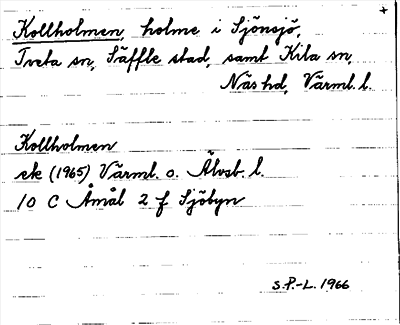 Kollholmen, holme i Sjönsjö,
Tveta sn, Säffle stad, samt Kila sn,
Näs hd, Värml. l.
Kollholmen
ek (1965) Värml. o. Älvsb. l.
10 C Åmål 2 f Sjöbyn
S.P.-L. 1966